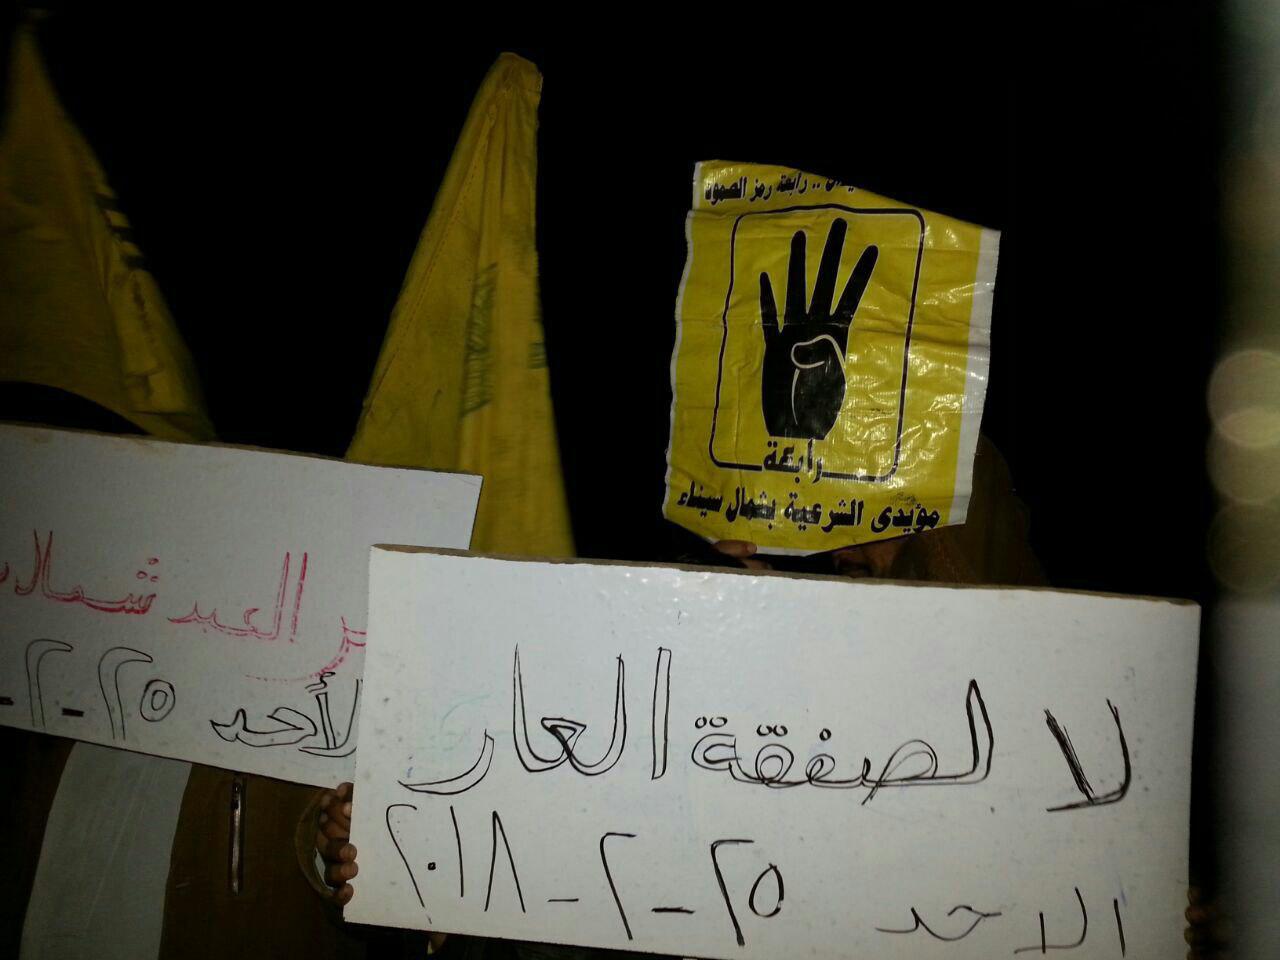 رابعة رمز الصمود
رابعة
مؤيدى الشرعية بشمال سيناء
العبد شمال
الأحد ٢٥-٢-
لا لصفقة العار
الاحد ٢٥-٢-٢٠١٨